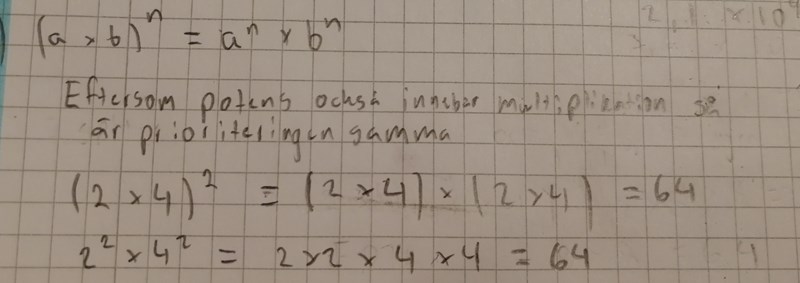 2,1 × 10⁴
) (a × b)ⁿ = aⁿ × bⁿ
Eftersom potens också innebär multiplikation så
är prioriteringen samma
(2 × 4)² = (2 × 4) × (2 × 4) = 64
2² × 4² = 2 × 2 × 4 × 4 = 64